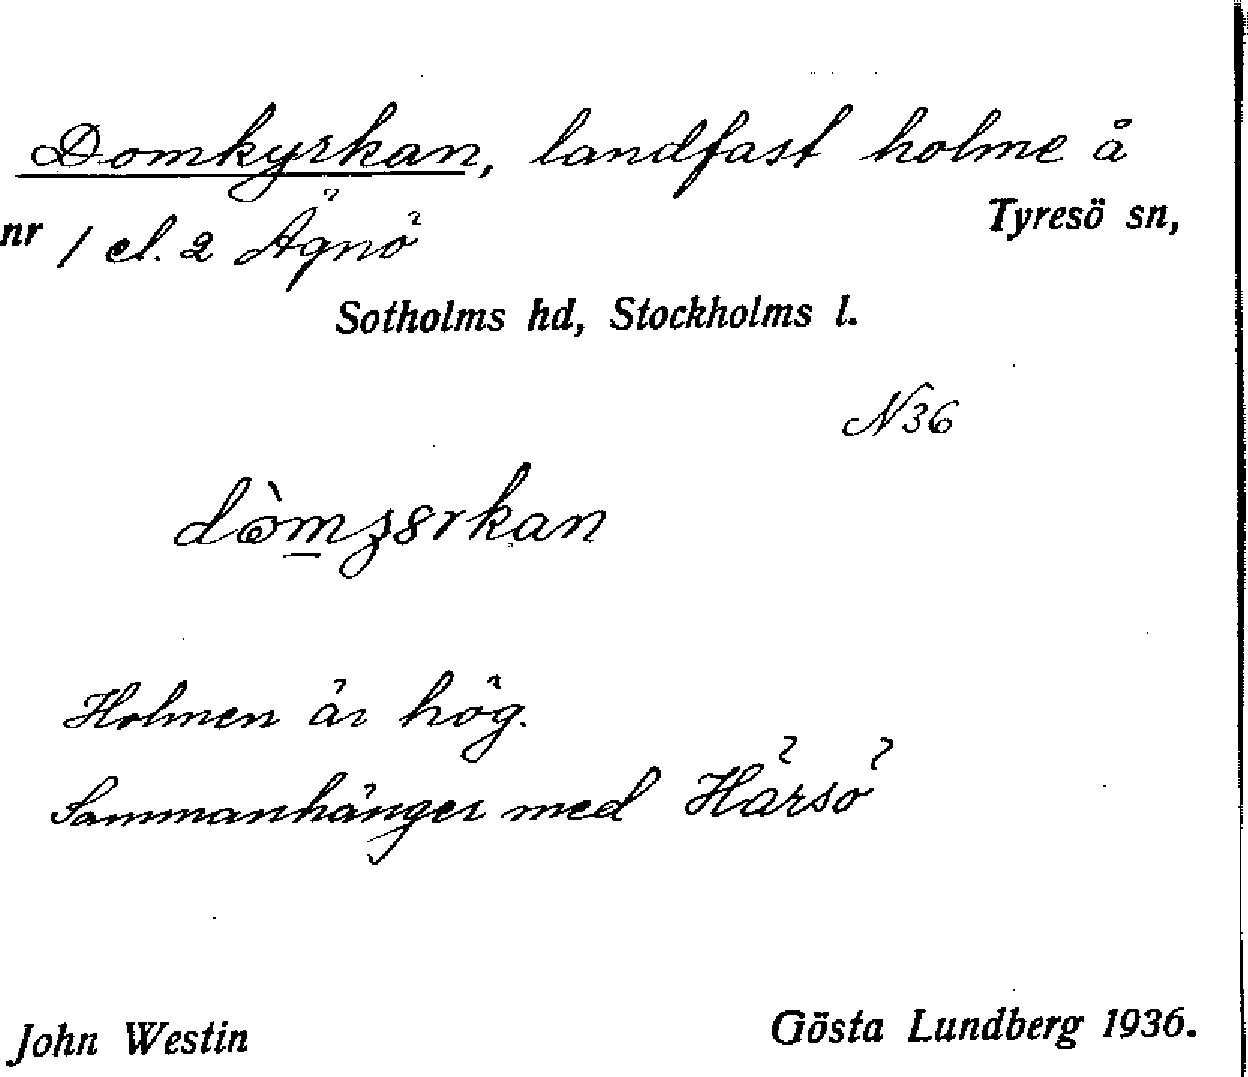 Domkyrkan, landfast holme å
Tyresö sn,
nr 1 el. 2 Ägnö
Sotholms hd, Stockholms l.
N36
Holmen är hög.
Sammanhänger med Härsö
John Westin
Gösta Lundberg 1936.